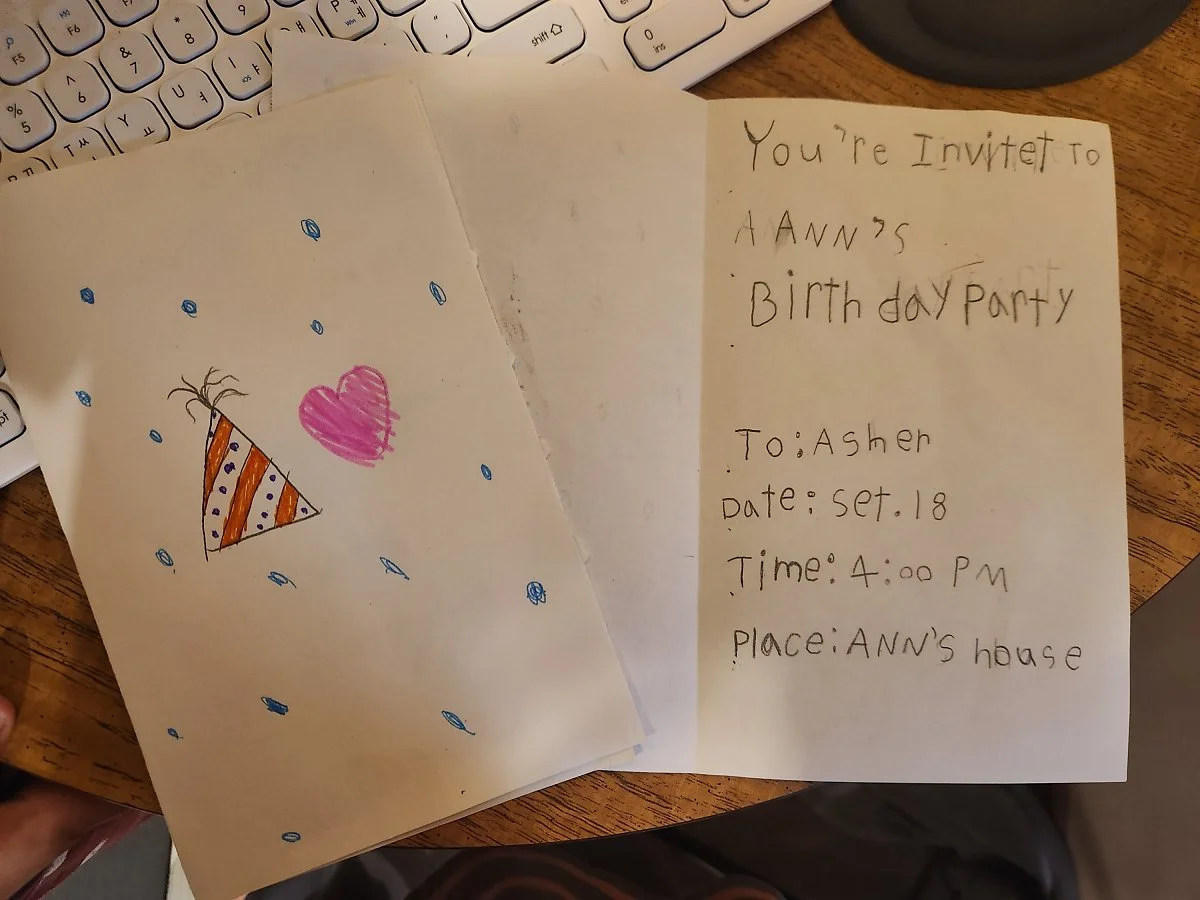 F5
F6
%
5
^
6
&
7
*
8
(
9
Y ㅛ
U ㅕ
I ㅑ
ios
P ㅔ
shift
0
ins
You're Invitet To
A ANN's
Birthday Party
To: Asher
Date: set.18
Time: 4:00 PM
Place: ANN's house